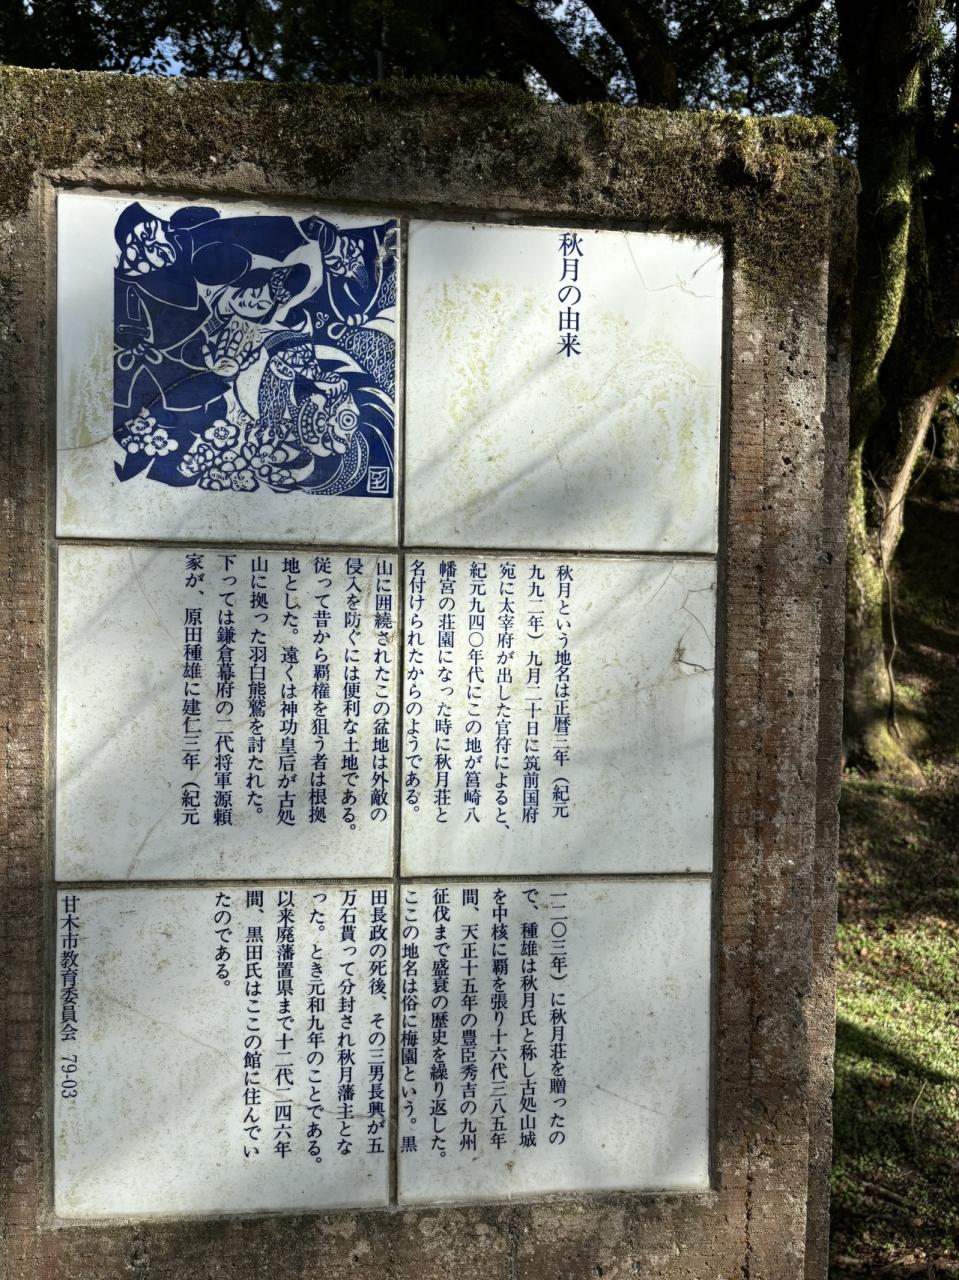 秋月の由来
秋月という地名は正暦三年（紀元
九九二年）九月二十日に筑前国府
宛に太宰府が出した官符によると、
紀元九四〇年代にこの地が筥崎八
幡宮の荘園になった時に秋月荘と
名付けられたからのようである。
山に囲繞されたこの盆地は外敵の
侵入を防ぐには便利な土地である。
従って昔から覇権を狙う者は根拠
地とした。遠くは神功皇后が古処
山に拠った羽白熊鷲を討たれた。
下っては鎌倉幕府の二代将軍源頼
家が、原田種雄に建仁三年（紀元
一二〇三年）に秋月荘を贈ったの
で、種雄は秋月氏と称し古処山城
を中核に覇を張り十六代三八五年
間、天正十五年の豊臣秀吉の九州
征伐まで盛衰の歴史を繰り返した。
ここの地名は俗に梅園という。黒
田長政の死後、その三男長興が五
万石貰って分封され秋月藩主とな
った。とき元和九年のことである。
以来廃藩置県まで十二代二四六年
間、黒田氏はここの館に住んでい
たのである。
甘木市教育委員会　79-03